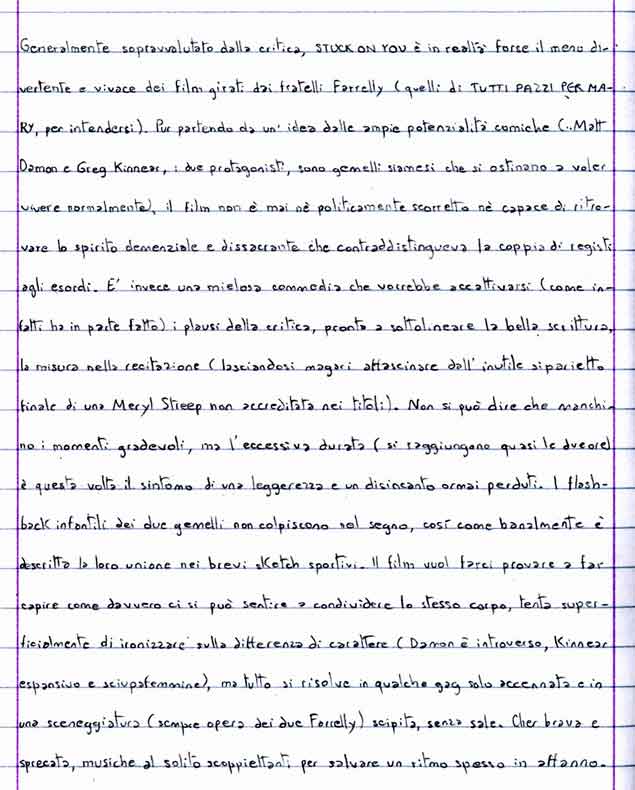 Generalmente sopravvalutato dalla critica, STUCK ON YOU è in realtà forse il meno di-
vertente e vivace dei film girati dai fratelli Farrelly (quelli di TUTTI PAZZI PER MA-
RY, per intendersi). Pur partendo da un'idea dalle ampie potenzialità comiche (..Matt
Damon e Greg Kinnear, i due protagonisti, sono gemelli siamesi che si ostinano a voler
vivere normalmente), il film non è mai nè politicamente scorretto nè capace di ritro-
vare lo spirito demenziale e dissacrante che contraddistingueva la coppia di registi
agli esordi. E' invece una mielosa commedia che vorrebbe accattivarsi (come in-
fatti ha in parte fatto) i plausi della critica, pronta a sottolineare la bella scrittura,
la misura nella recitazione (lasciandosi magari affascinare dall'inutile siparietto
finale di una Meryl Streep non accreditata nei titoli). Non si può dire che manchi-
no i momenti gradevoli, ma l'eccessiva durata (si raggiungono quasi le due ore)
è questa volta il sintomo di una leggerezza e un disincanto ormai perduti. I flash-
back infantili dei due gemelli non colpiscono nel segno, così come banalmente è
descritta la loro unione nei brevi sketch sportivi. Il film vuol farci provare a far
capire come davvero ci si può sentire a condividere lo stesso corpo, tenta super-
ficialmente di ironizzare sulla differenza di carattere (Damon è introverso, Kinnear
espansivo e sciupafemmine), ma tutto si risolve in qualche gag solo accennata e in
una sceneggiatura (sempre opera dei due Farrelly) scipita, senza sale. Cher brava e
sprecata, musiche al solito scoppiettanti per salvare un ritmo spesso in affanno.